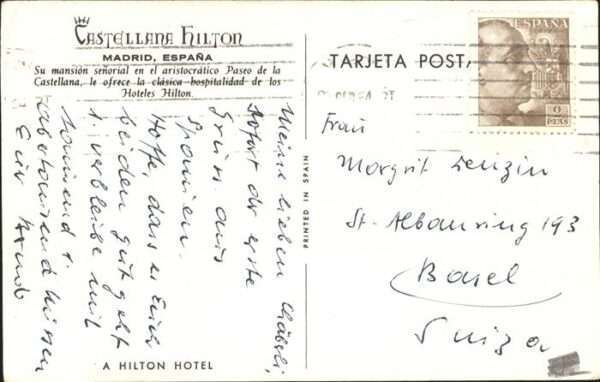 CASTELLANA HILTON
MADRID, ESPAÑA
Su mansión señorial en el aristocrático Paseo de la
Castellana, le ofrece la clásica hospitalidad de los
Hoteles Hilton.
Meine lieben
Sofort der erste
Gruss aus
Spanien.
Hoffe, dass es Euch
beiden gut geht
& verbleibe mit
tausend &
abertausend Küssen
Euer
A HILTON HOTEL
PRINTED IN SPAIN
TARJETA POST
ESPAÑA
PTAS
Frau
Margrit Lenzin
St. Albanring 193
Basel
Suiza